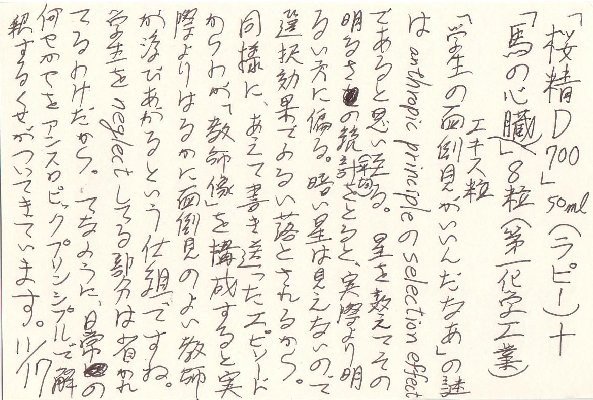 「桜精D700」50ml(ラピー)+
「馬の心臓」エキス粒 8粒(第一化学工業)
「学生の面倒見がいいんだなあ」の謎
は anthropic principle の selection effect
であると思い到る。星を数えてその
明るさの統計平均をとると、実際より明
るい方に偏る。暗い星は見えないので
選択効果でふるい落とされるから。
同様に、あえて書き送ったエピソード
からわが「教師像」を構成すると実
際よりはるかに面倒見のよい教師
が浮びあがるという仕組ですね。
学生をneglectしてる部分は省かれ
てるわけだから。てなように、日常の
何もかもをアンスロピックプリンシプルで解
釈するくせがついてきています。11/17